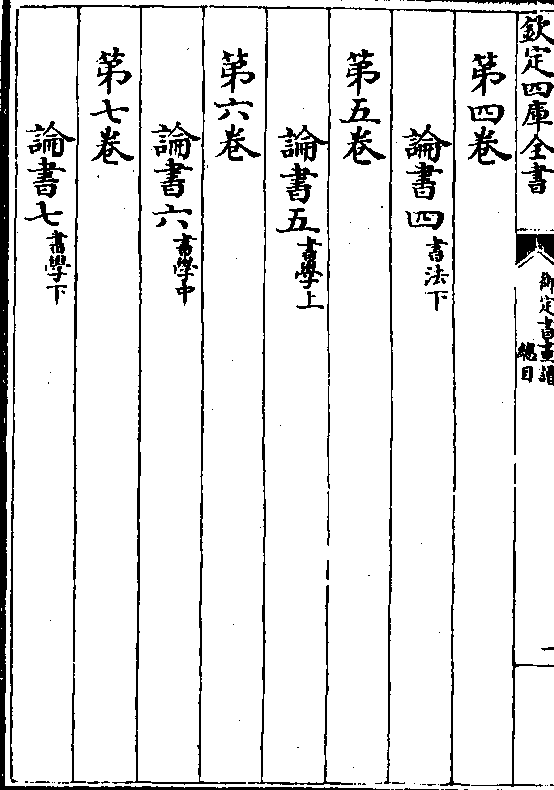 欽定四庫全書
御定書畫譜
總目
一
第四卷
論書四書法下
第五卷
論書五書學上
第六卷
論書六書學中
第七卷
論書七書學下